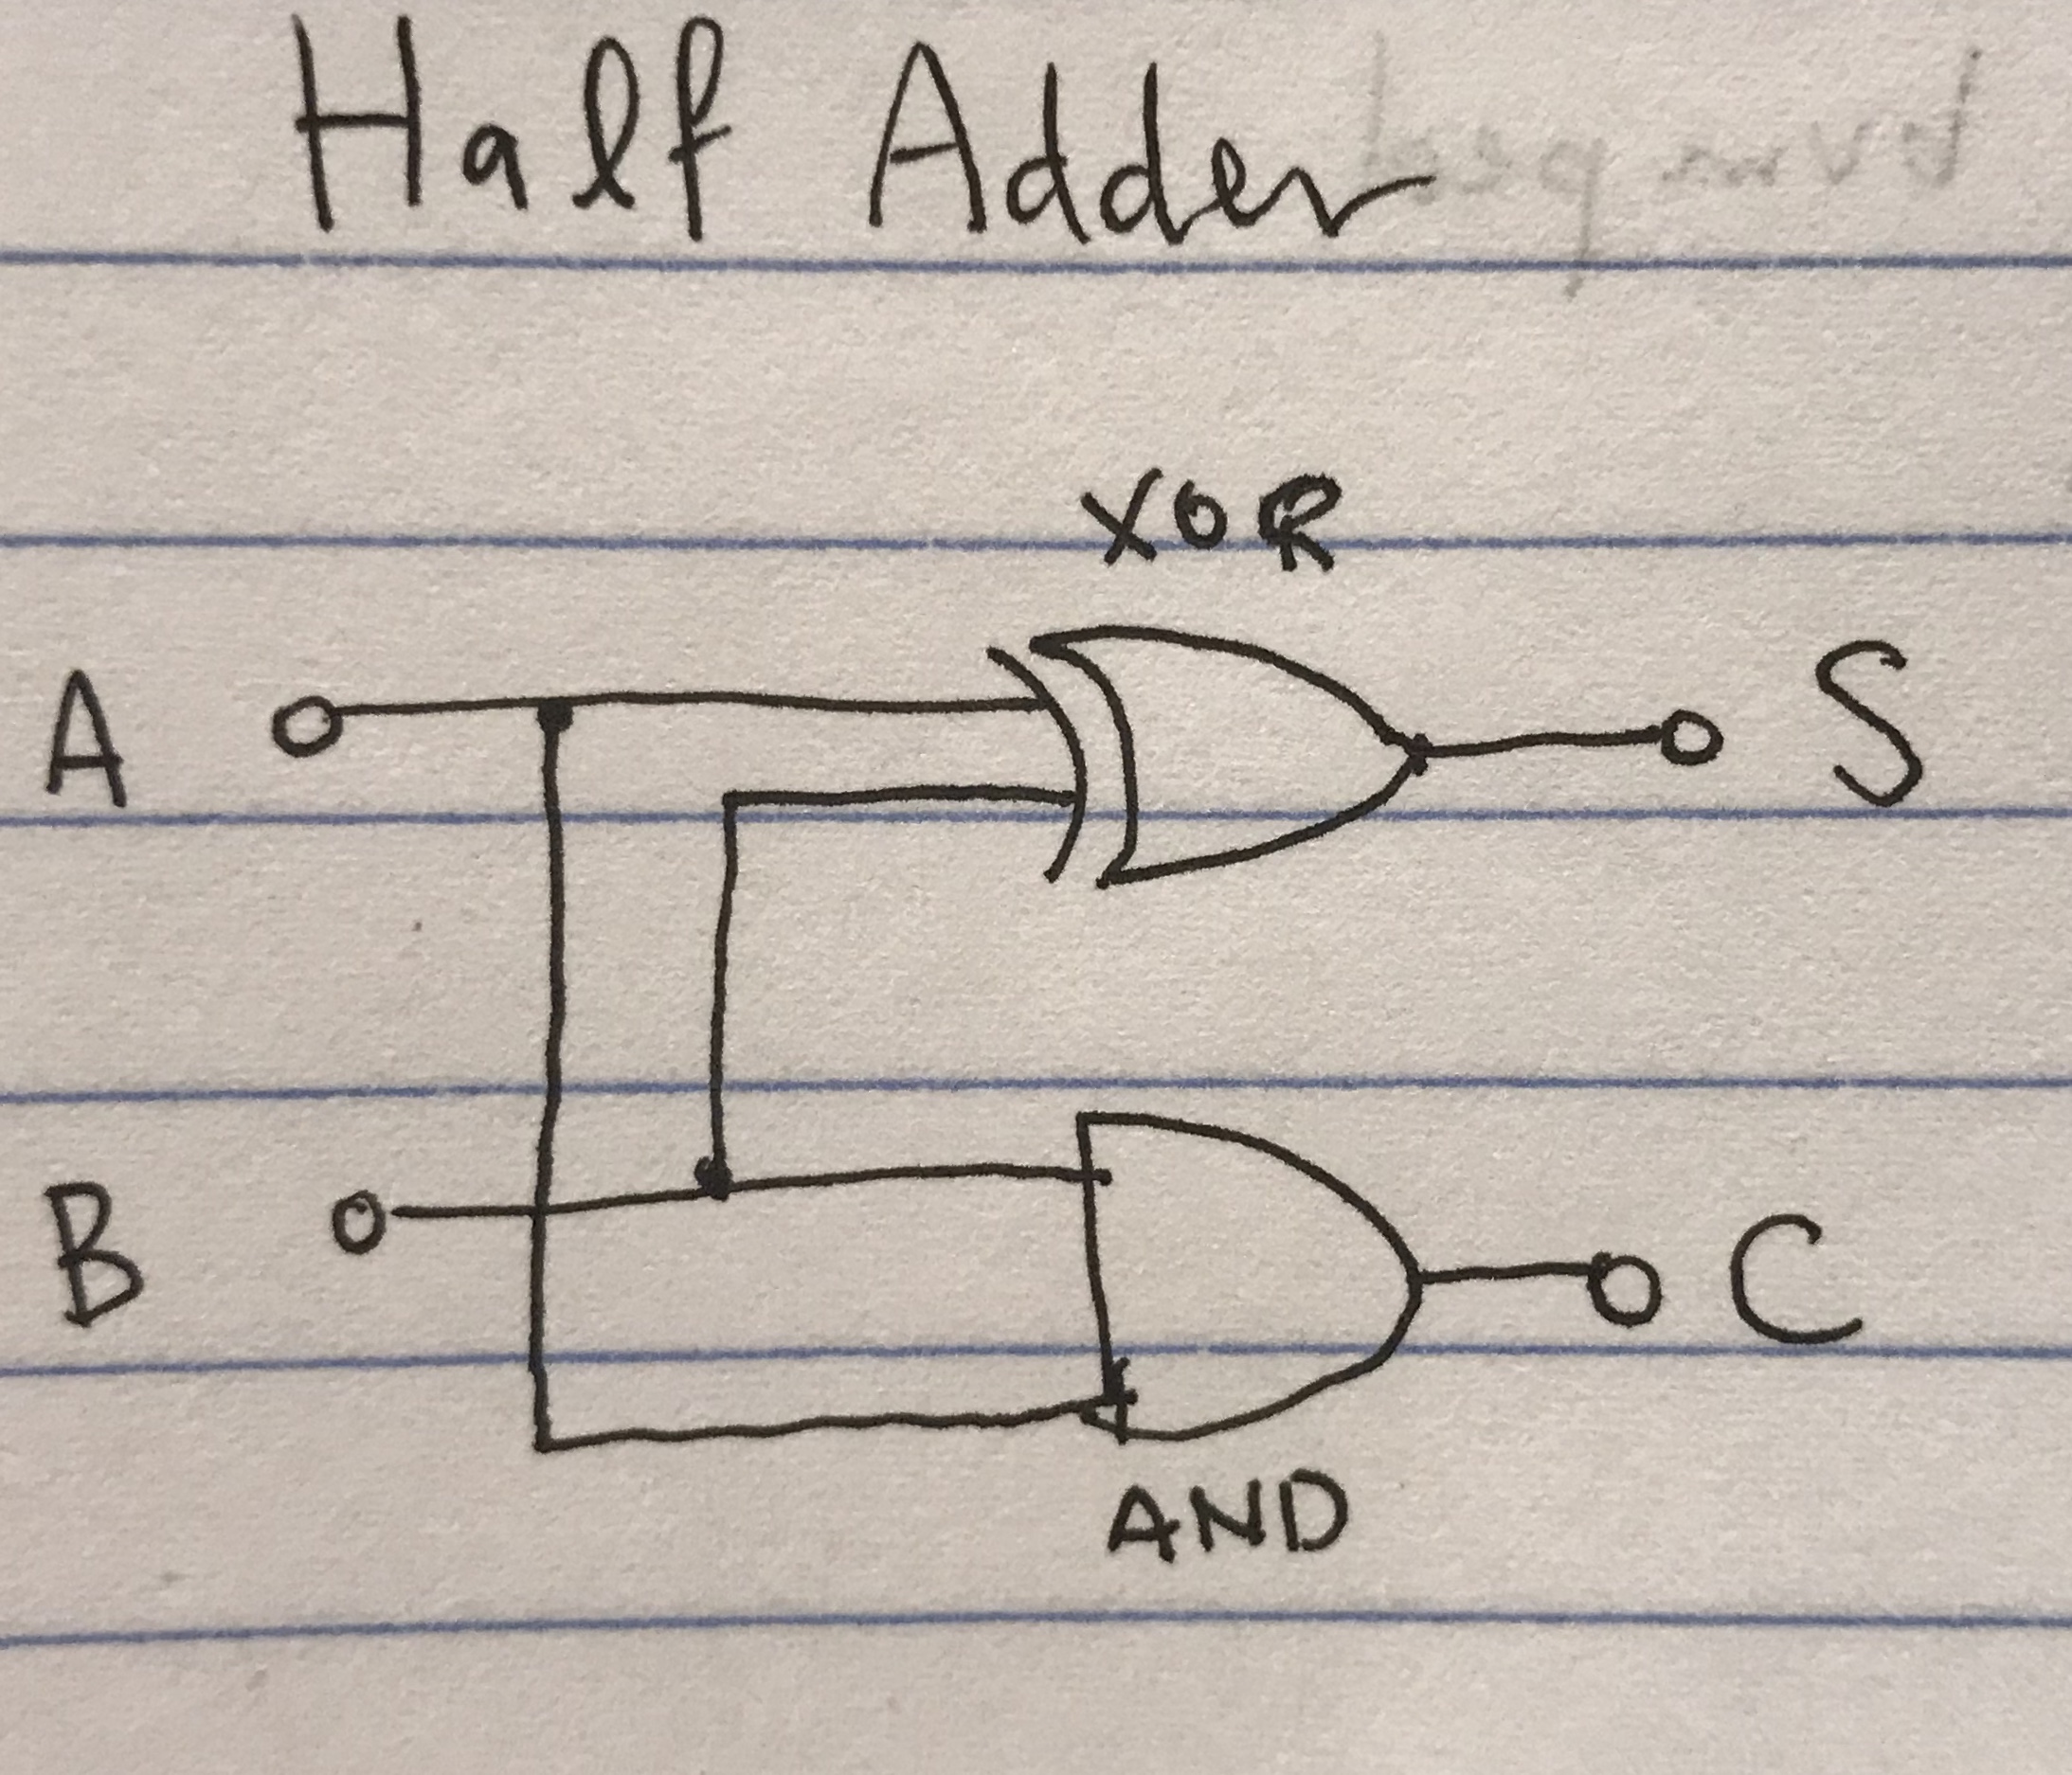 Half Adder
XOR
A
S
B
C
AND